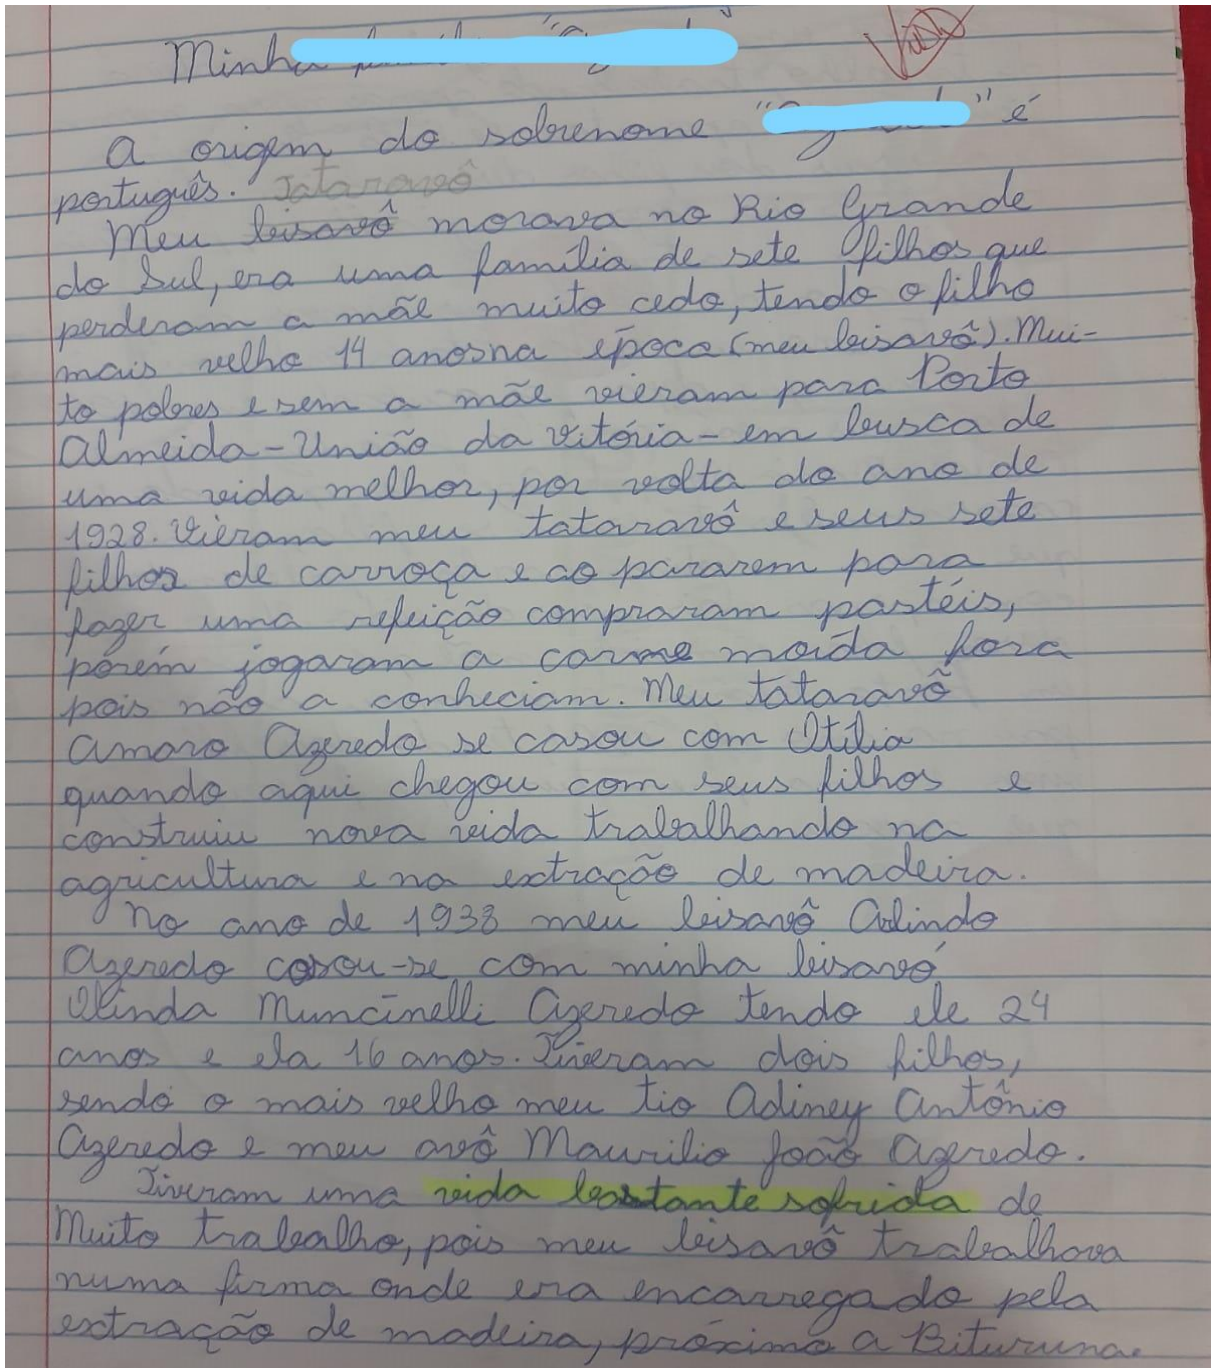 Minha
A origem do sobrenome " " é
português. Tataravô
Meu bisavô morava no Rio Grande
do Sul, era uma família de sete filhos que
perderam a mãe muito cedo, tendo o filho
mais velho 14 anosna época (meu bisavô). Mui-
to pobres e sem a mãe vieram para Porto
Almeida - União da Vitória - em busca de
uma vida melhor, por volta do ano de
1928. Vieram meu tataravô e seus sete
filhos de carroça e ao pararem para
fazer uma refeição compraram pastéis,
porém jogaram a carne moída fora
pois não a conheciam. Meu tataravô
Amaro Azeredo se casou com Otília
quando aqui chegou com seus filhos e
construiu nova vida trabalhando na
agricultura e na extração de madeira.
No ano de 1938 meu bisavô Arlindo
Azeredo casou-se com minha bisavó
Olinda Muncinelli Azeredo tendo ele 24
anos e ela 16 anos. Tiveram dois filhos,
sendo o mais velho meu tio Adiney Antônio
Azeredo e meu avô Maurilio João Azeredo.
Tiveram uma vida bastante sofrida de
Muito trabalho, pois meu bisavô trabalhava
numa firma onde era encarregado pela
extração de madeira, próximo a Bituruna.